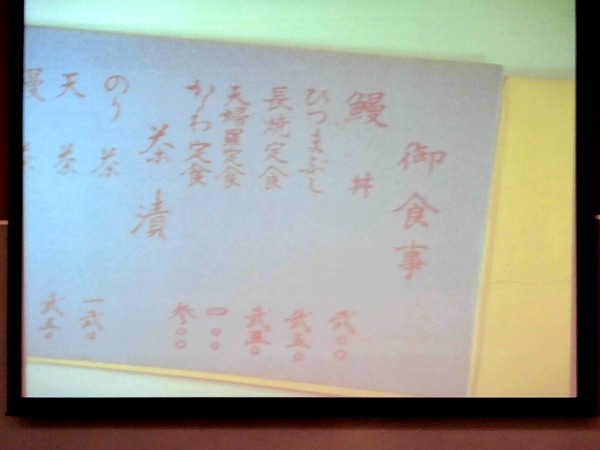 御食事
鰻丼 弐〇〇
ひつまぶし 弐五〇
長焼定食 弐五〇
天婦羅定食 四〇〇
かしわ定食 参〇〇
茶漬
のり茶 一弐〇
天茶 弐五〇
鰻茶